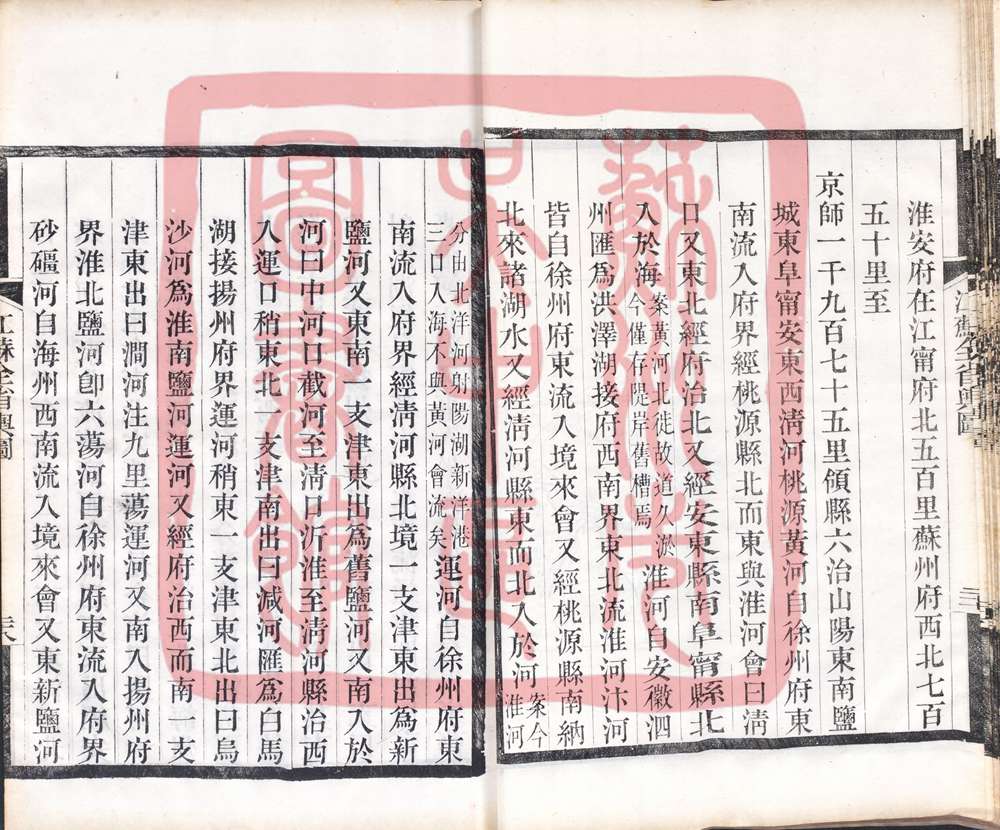 淮安府在江甯府北五百里蘇州府西北七百
五十里至
京師一千九百七十五里領縣六治山陽東南鹽
城東阜甯安東西清河桃源黃河自徐州府東
南流入府界經桃源縣北而東與淮河會曰清
口又東北經府治北又經安東縣南阜甯縣北
入於海案黃河北徙故道久淤今僅存隄岸舊槽焉淮河自安徽泗
州匯爲洪澤湖接府西南界東北流淮河汴河
皆自徐州府東流入境來會又經桃源縣南納
北來諸湖水又經清河縣東而北入於河案今淮河
分由北洋河射陽湖新洋港三口入海不與黃河會流矣運河自徐州府東
南流入府界經清河縣北境一支津東出爲新
鹽河又東南一支津東出爲舊鹽河又南入於
河曰中河口截河至清口沂淮至清河縣治西
入運口稍東北一支津南出曰減河匯爲白馬
湖接揚州府界運河稍東一支津東北出曰烏
沙河爲淮南鹽河運河又經府治西而南一支
津東出曰澗河注九里蕩運河又南入揚州府
界淮北鹽河卽六蕩河自徐州府東流入府界
砂礓河自海州西南流入境來會又東新鹽河
江蘇全省輿圖
圖書館